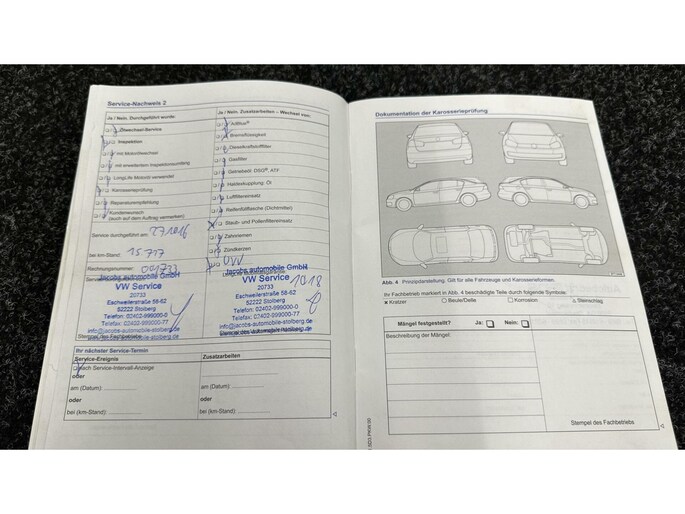 Service-Nachweis 2
Ja / Nein, Durchgeführt wurde:
Ölwechsel-Service
Inspektion
mit Mobilitätsschein
mit erweitertem Inspektionsumfang
LongLife Motoröl verwendet
Karosserieprüfung
Reparaturempfehlung
Kundenwunsch
(auch auf dem Auftrag vermerken)
Service durchgeführt am:
bei km-Stand: 15.717
Rechnungsnummer:
Jacobs automobile GmbH
VW Service
20733
Eschweilerstraße 58-62
52222 Stolberg
Telefon: 02402-999000-0
Telefax: 02402-999000-77
info@jacobs-automobile-stolberg.de
Stempel des Fachbetriebs
Ja / Nein, Zusatzarbeiten – Wechsel von:
AdBlue®
Bremsflüssigkeit
Dieselkraftstofffilter
Gasfilter
Getriebeöl: DSG®, ATF
Haldexkupplung: Öl
Luftfiltereinsatz
Reifenfüllflasche (Dichtmittel)
Staub- und Pollenfiltereinsatz
Zahnriemen
Zündkerzen
Jacobs automobile GmbH
VW Service
20733
Eschweilerstraße 58-62
52222 Stolberg
Telefon: 02402-999000-0
Telefax: 02402-999000-77
info@jacobs-automobile-stolberg.de
Ihr nächster Service-Termin
Service-Ereignis
Zusatzarbeiten
nach Service-Intervall-Anzeige
oder
am (Datum):
am (Datum):
oder
oder
bei (km-Stand):
bei (km-Stand):
Dokumentation der Karosserieprüfung
Abb. 4 Prinzipdarstellung: Gilt für alle Fahrzeuge und Karosserieformen.
Ihr Fachbetrieb markiert in Abb. 4 beschädigte Teile durch folgende Symbole:
Kratzer
Beule/Delle
Korrosion
Steinschlag
Mängel festgestellt? Ja: Nein:
Beschreibung der Mängel:
Stempel des Fachbetriebs